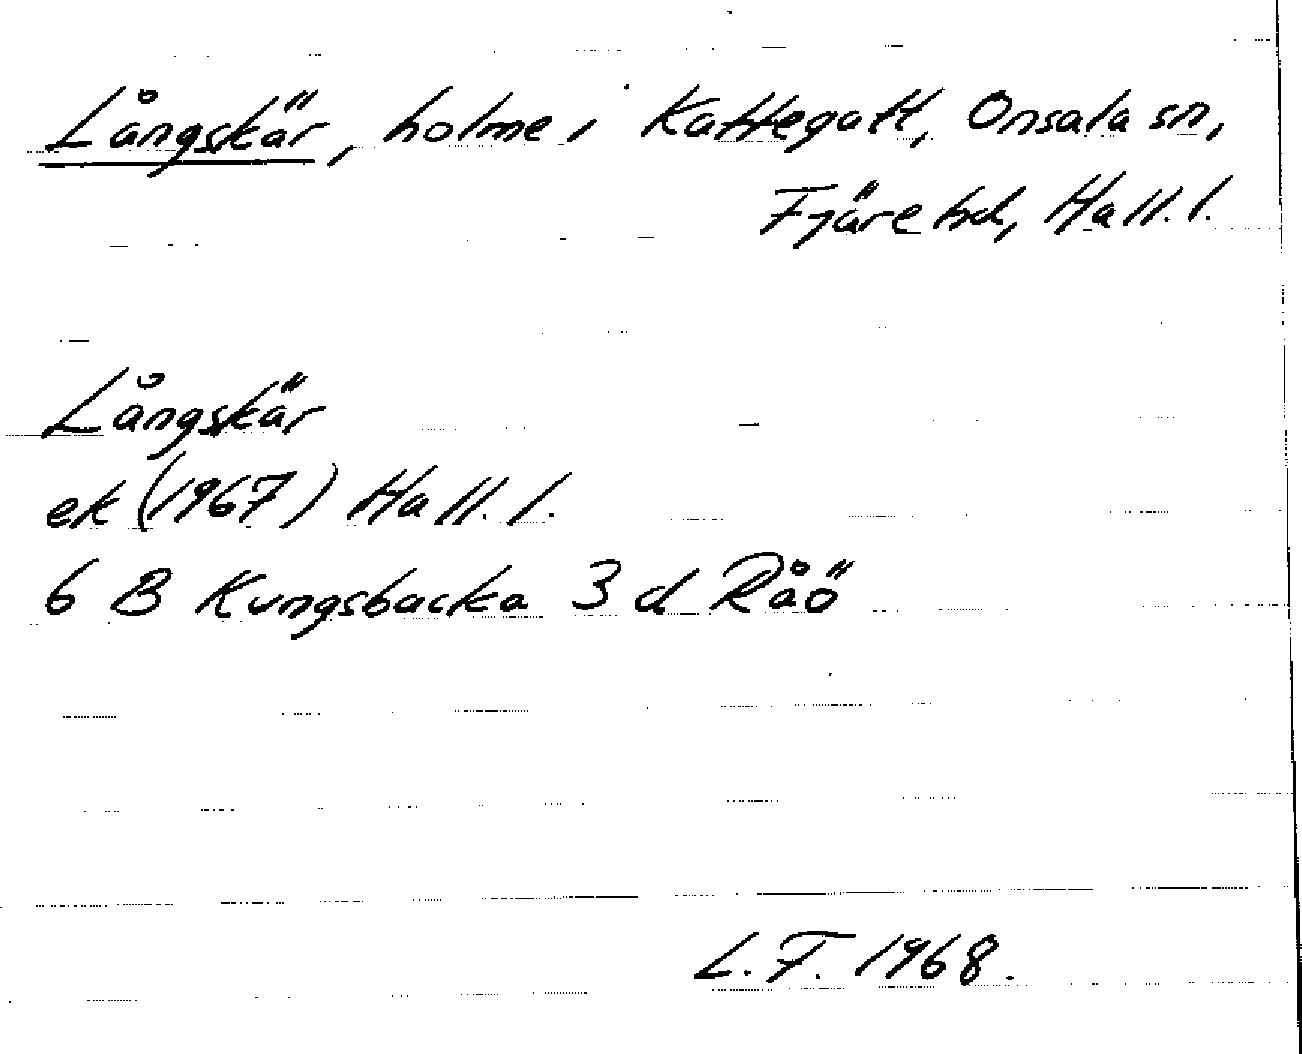 Långskär, holme i Kattegatt, Onsala sn,
Fjäre hd, Hall. l.
Långskär
ek (1967) Hall. l.
6 B Kungsbacka 3 d Råö
L. F. 1968.